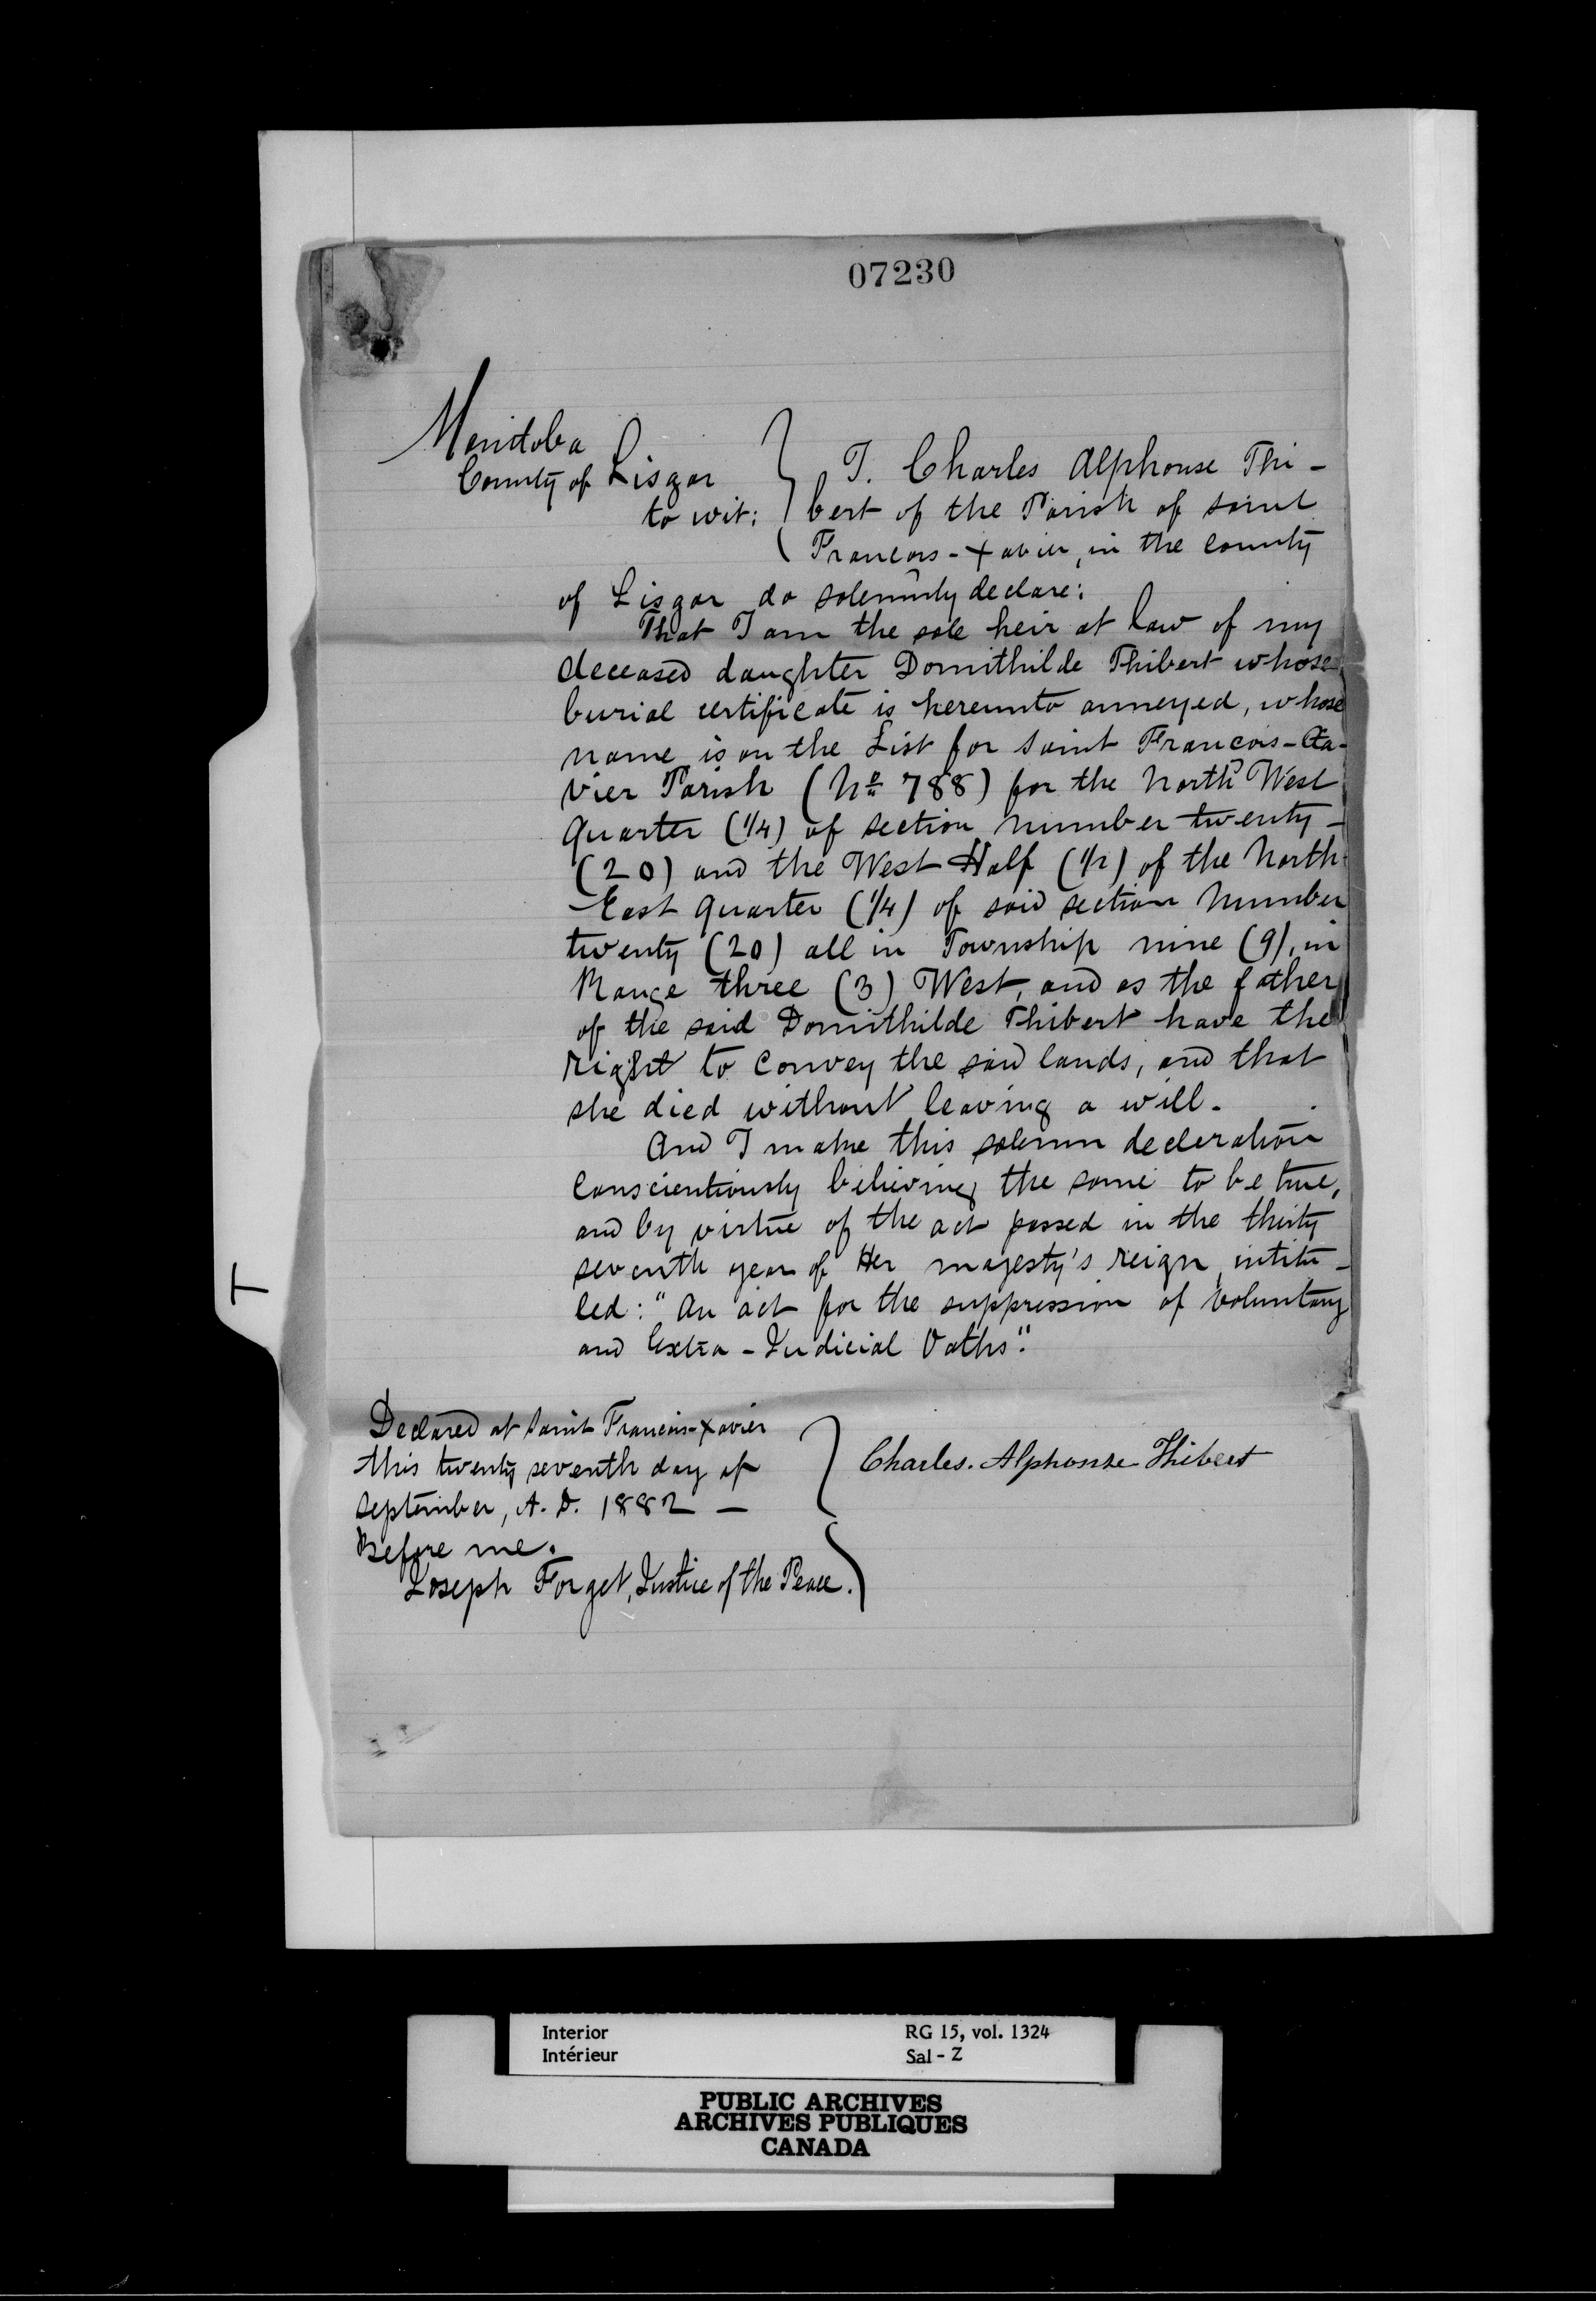 07230
Manitoba
County of Lisgar
to wit:
I. Charles Alphonse Thi-
bert of the Parish of saint
Francois-Xavier, in the county
of Lisgar do solemnly declare:
That I am the sole heir at law of my
deceased daughter Domithilde Thibert whose
burial certificate is hereunto annexed, whose
name is on the List for Saint Francois-Xa-
vier Parish (No 788) for the North West
Quarter (1/4) of section number twenty-
(20) and the West Half (1/2) of the North-
East Quarter (1/4) of said section Number
twenty (20) all in Township nine (9), in
Range three (3) West, and as the father
of the said Domithilde Thibert have the
right to convey the said lands, and that
she died without leaving a will.
And I make this solemn declaration
conscientiously believing the same to be true,
and by virtue of the act passed in the thirty
seventh year of Her majesty's reign, intitu-
led: "An act for the suppression of Voluntary
and Extra-Judicial Oaths".
Declared at Saint Francois-Xavier
this twenty seventh day of
september, A. D. 1882 —
Before me.
Joseph Forget, Justice of the Peace.
Charles. Alphonse Thibert
T
Interior RG 15, vol. 1324
Intérieur Sal - Z
PUBLIC ARCHIVES
ARCHIVES PUBLIQUES
CANADA